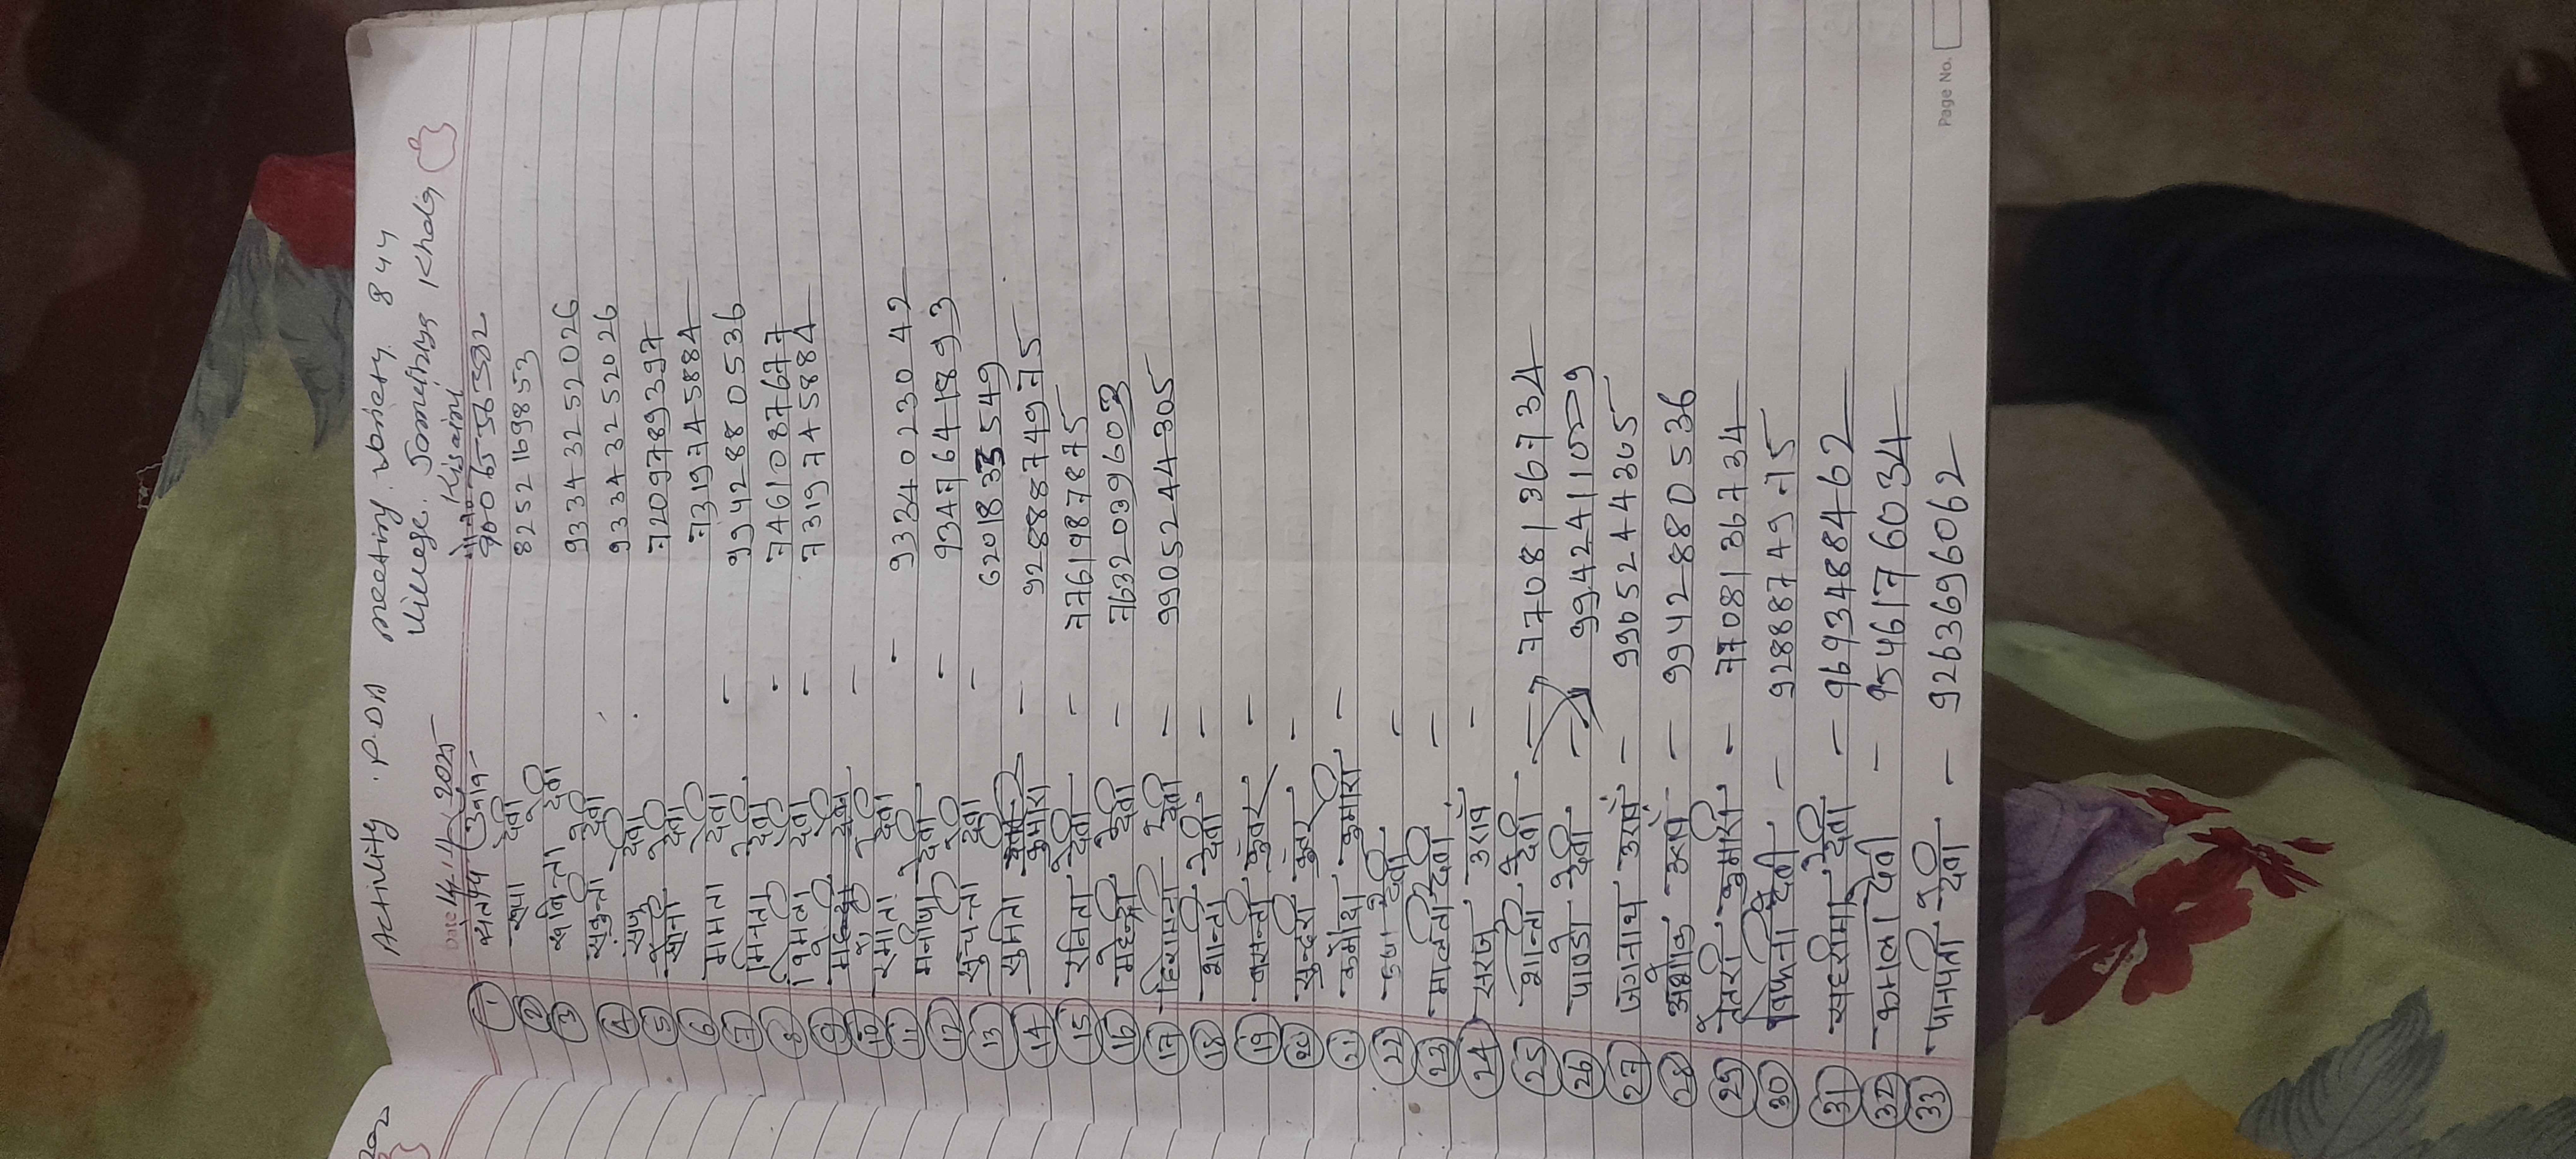 Activity . P.DA meeting. Variety. 844
Village. Khadig
Date 14/11/2025 Kisaan
① संतोष उरांव 9006556582
② रूपा देवी 8252169853
③ सबिन्ता देवी 9334325 2026
④ सकुन्ती देवी 9334325 2026
⑤ राजु देवी 7209789397
⑥ सोना देवी 7319745884
⑦ ममता देवी - 9942880536
⑧ मिनता देवी - 7461087677
⑨ विमला देवी - 7319745884
⑩ देवी -
⑪ देवी - 9334023042
⑫ मनीषा देवी - 9347641893
⑬ सुचन्ता देवी - 6201833549
⑭ सुमिता कुमारी - 9288874975
⑮ रनिता देवी - 7761987875
⑯ महेन्द्री देवी - 7632039603
⑰ हिरामनी देवी - 9905244305
⑱ शान्ती देवी -
⑲ बसन्ती कुंवर -
⑳ सुन्दरी कुंवर -
㉑ कुमारी -
㉒ देवी -
㉓ मालती देवी -
㉔ सरजु उरांव -
㉕ शान्ति देवी -> 7708136734
㉖ पाण्डो देवी -> 99424110
㉗ जगनाथ उरांव - 9905244305
㉘ अशोक उरांव - 9942880536
㉙ तेतरी कुमारी - 7708136734
㉚ देवी - 9288874975
㉛ देवी - 9693488462
㉜ कमला देवी - 9546176034
㉝ पानपती देवी - 9263696062
Page No.